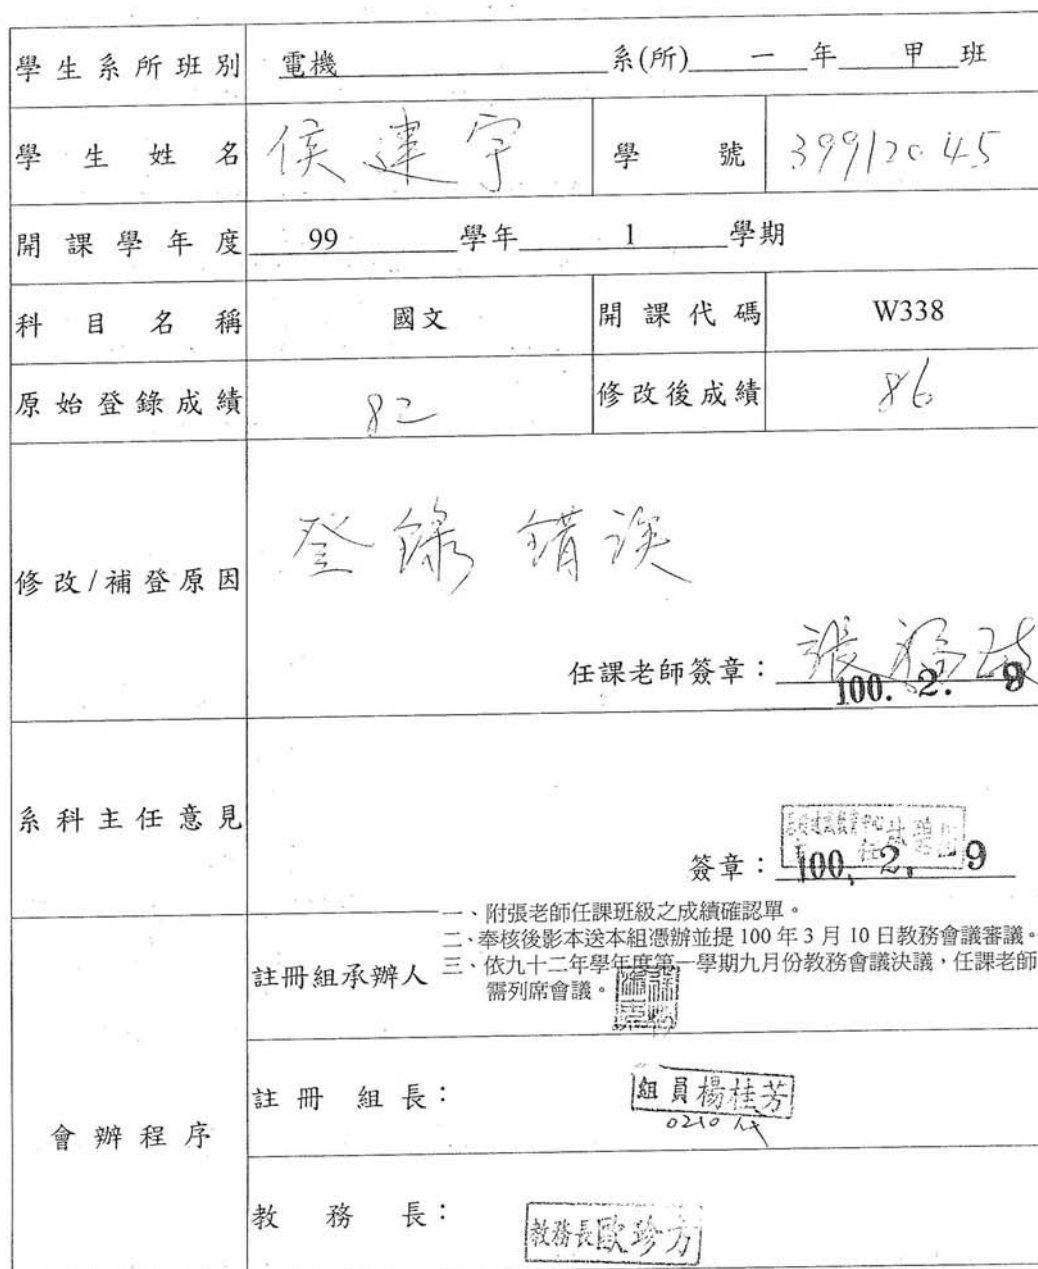 學生系所班別 電機 系(所) 一 年 甲 班
學生姓名 侯建宇 學號 39912045
開課學年度 99 學年 1 學期
科目名稱 國文 開課代碼 W338
原始登錄成績 82 修改後成績 86
修改/補登原因 登錄錯誤
任課老師簽章：張
100. 2. 9
系科主任意見
簽章：100. 2. 9
會辦程序
註冊組承辦人
一、附張老師任課班級之成績確認單。
二、奉核後影本送本組憑辦並提 100 年 3 月 10 日教務會議審議。
三、依九十二年學年度第一學期九月份教務會議決議，任課老師
需列席會議。
註冊組長：組員楊桂芳
0210
教務長：教務長歐珍方